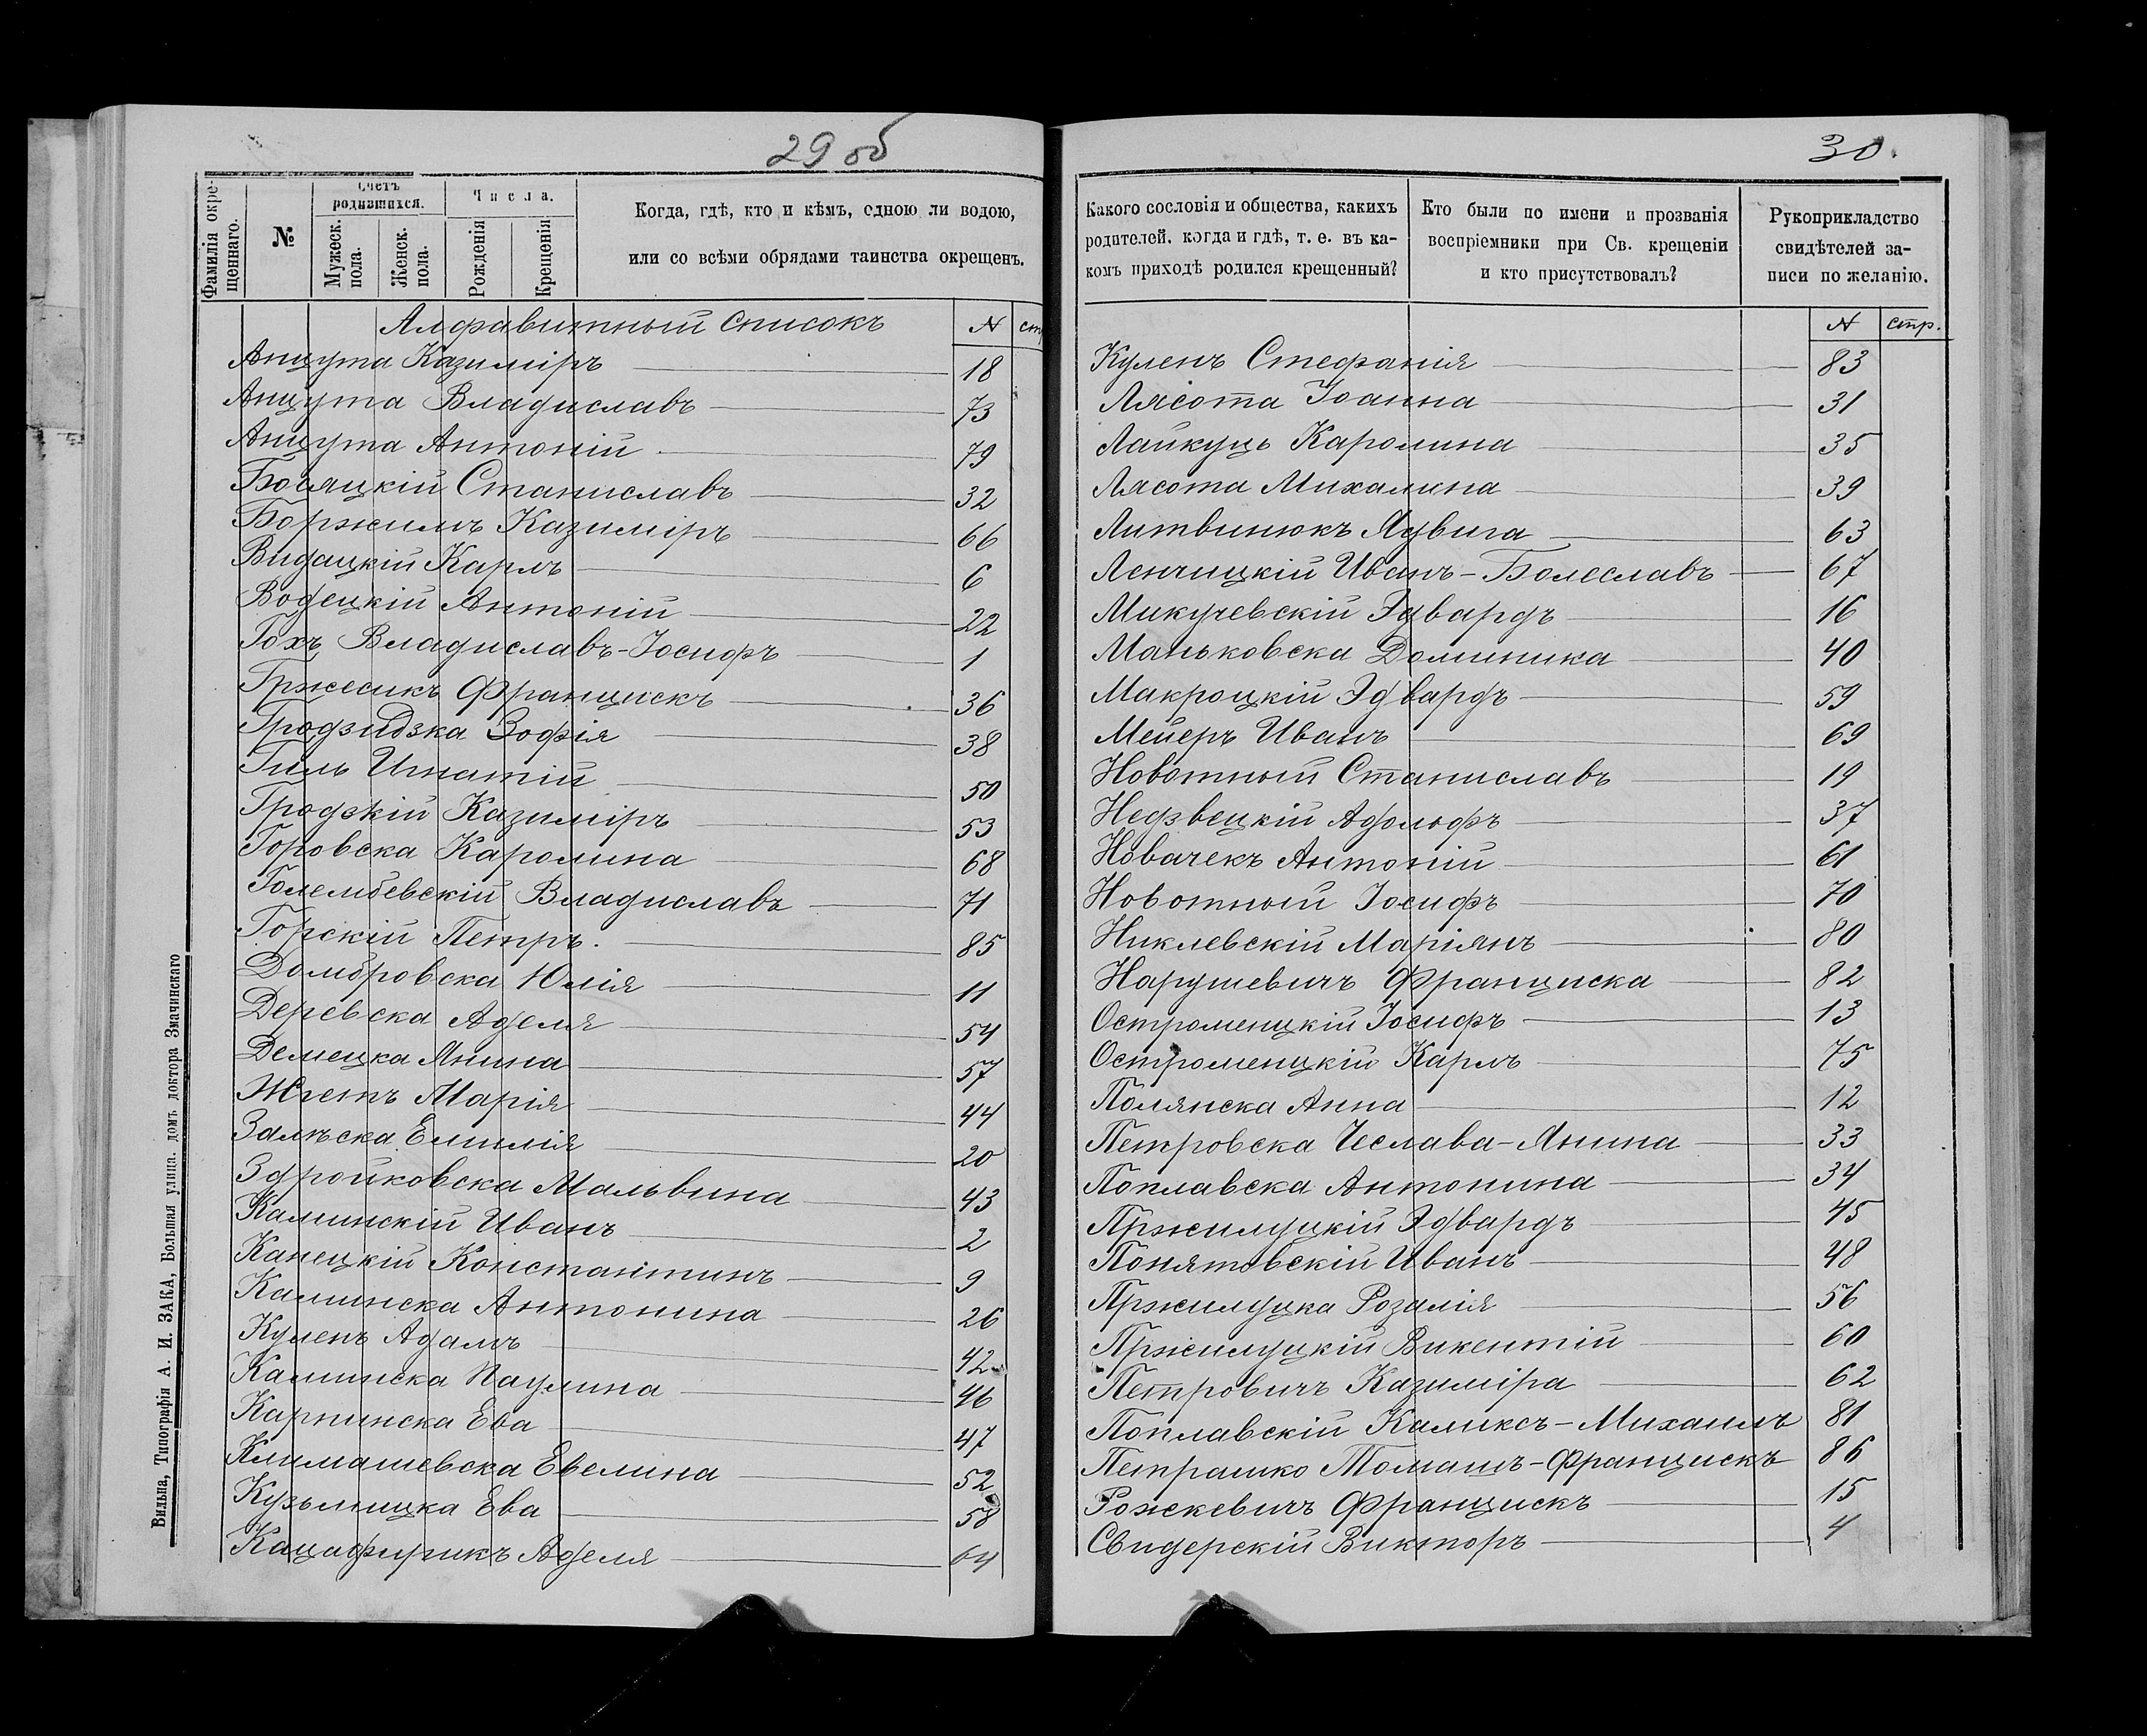 29 об
Фамилія окре-
щеннаго.
№
Счетъ
родившихся.
Мужеск.
пола.
Женск.
пола.
Числа.
Рожденія
Крещенія
Когда, гдѣ, кто и кѣмъ, одною ли водою,
или со всѣми обрядами таинства окрещенъ.
Алфавитный Списокъ N стр
Анцута Казиміръ 18
Анцута Владиславъ 73
Анцута Антоній 79
Богяцкій Станиславъ 32
Боржимъ Казиміръ 66
Видацкій Карлъ 6
Водецкій Антоній 22
Гохъ Владиславъ-Іосифъ 1
Гржесикъ Францискъ 36
Гродзидзка Зофія 38
Гиль Игнатій 50
Гродзкій Казиміръ 53
Горовска Каролина 68
Голембевскій Владиславъ 71
Горскій Петръ. 85
Домбровска Юлія 11
Деревска Аделя 54
Демецка Янина 57
Жгетъ Марія 44
Залѣска Емилія 20
Здройковска Мальвина 43
Калинскій Иванъ 2
Канецкій Константинъ 9
Калинска Антонина 26
Куленъ Адамъ 42
Калинска Паулина 46
Карпинска Ева 47
Климашевска Евелина 52
Кузьмицка Ева 58
Кацафирикъ Аделя 64
Вильна, Типографія А. И. ЗАКА, Большая улица. домъ доктора Змачинскаго
30.
Какого сословія и общества, какихъ
родителей. когда и гдѣ, т. е. въ ка-
комъ приходѣ родился крещенный?
Кто были по имени и прозванія
воспріемники при Св. крещеніи
и кто присутствовалъ?
Рукоприкладство
свидѣтелей за-
писи по желанію.
N стр.
Куленъ Стефанія 83
Лясота Іоанна 31
Лайкуць Каролина 35
Лясота Михалина 39
Литвинюкъ Ядвига 63
Ленчицкій Иванъ-Болеславъ 67
Микучевскій Эдвардъ 16
Маньковска Доминика 40
Макроцкій Эдвардъ 59
Мейеръ Иванъ 69
Новотный Станиславъ 19
Недзвецкій Адольфъ 37
Новачекъ Антоній 61
Новотный Іосифъ 70
Никлевскій Маріянъ 80
Нарушевичъ Франциска 82
Остроменцкій Іосифъ 13
Остроменцкій Карлъ 75
Полянска Анна 12
Петровска Чеслава-Янина 33
Поплавска Антонина 34
Пржилуцкій Эдвардъ 45
Понятовскій Иванъ 48
Пржилуцка Розалія 56
Пржилуцкій Викентій 60
Петровичъ Казиміра 62
Поплавскій Каликсъ-Михаилъ 81
Петрашко Томашъ-Францискъ 86
Рожкевичъ Францискъ 15
Свидерскій Викторъ 4